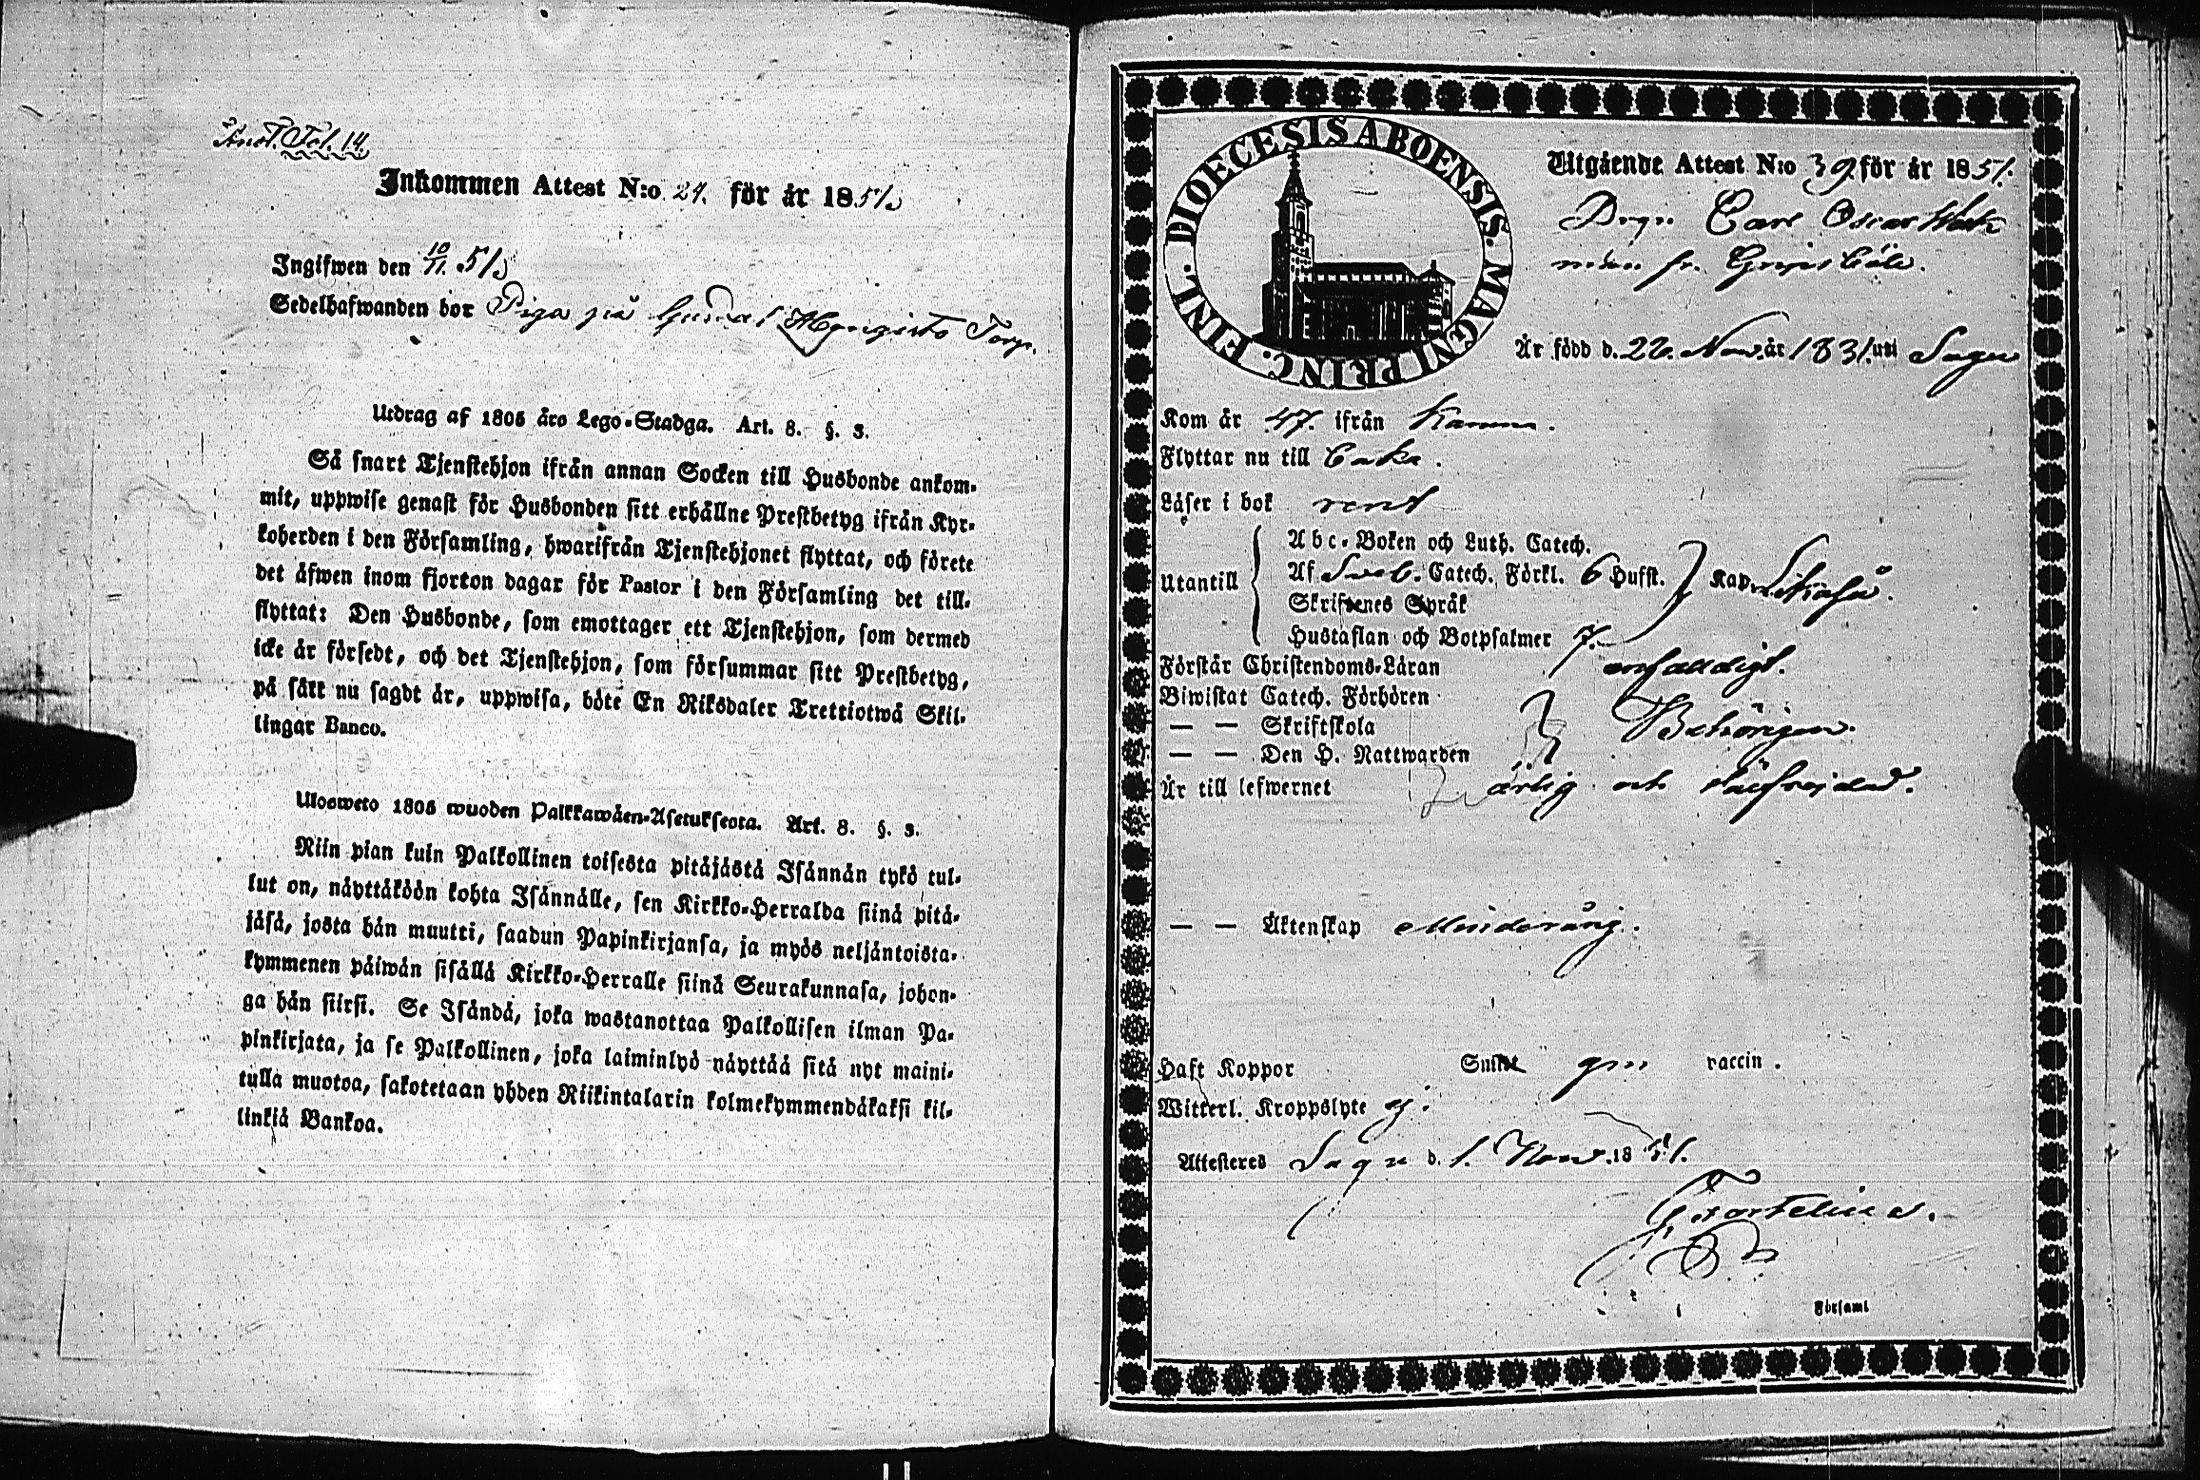 Anot. Fol. 14.
Inkommen Attest N:o 24. för år 1851.
Ingifwen den 10/11. 51.
Sedelhafwanden bor Piga på Torp.
Utdrag af 1805 års Lego-Stadga. Art. 8. §. 3.
Så snart Tjenstehjon ifrån annan Socken till Husbonde ankom-
mit, uppwise genast för Husbonden sitt erhållne Prestbetyg ifrån Kyr-
koherden i den Församling, hwarifrån Tjenstehjonet flyttat, och förete
det äfwen inom fjorton dagar för Pastor i den Församling det till-
flyttat: Den Husbonde, som emottager ett Tjenstehjon, som dermed
icke är försedt, och det Tjenstehjon, som försummar sitt Prestbetyg,
på sätt nu sagdt är, uppwisa, böte En Riksdaler Trettiotwå Skil-
lingar Banco.
Ulosweto 1805 wuoden Palkkawäen-Asetuksesta. Art. 8. §. 3.
Niin pian kuin Palkollinen toisesta pitäjästä Isännän tykö tul-
lut on, näyttäköön kohta Isännälle, sen Kirkko-Herralda siinä pitä-
jäsä, josta hän muutti, saadun Papinkirjansa, ja myös neljäntoista-
kymmenen päiwän sisällä Kirkko-Herralle siinä Seurakunnasa, johon-
ga hän siirsi. Se Isändä, joka wastanottaa Palkollisen ilman Pa-
pinkirjata, ja se Palkollinen, joka laiminlyö näyttää sitä nyt maini-
tulla muotoa, sakotetaan yhden Riikintalarin kolmekymmendäkaksi kil-
linkiä Bankoa.
DIOECESIS ABOENSIS. MAGNI PRINC. FINL.
Utgående Attest N:o 39 för år 1851.
Drgn Carl Oscar Wak
man fr. Gripsböle.
Är född d. 22. Nov. år 1831. uti Sagu
Kom år 47. ifrån Karuna.
Flyttar nu till
Läser i bok rent
Utantill
Abc-Boken och Luth. Catech.
Af Sveb. Catech. Förkl. 6 Hufst. Kap.
Skriftenes Språk
Hustaflan och Botpsalmer 7.
Förstår Christendoms-Läran enfalldigt.
Biwistat Catech. Förhören
— — Skriftskola Behörigen.
— — Den H. Nattwarden
Är till lefwernet ärlig och välfrejdad.
— — Äktenskap Minderårig.
Haft Koppor Smitt gm vaccin.
Witterl. Kroppslyte ej.
Attesteres Sagu d. 1. Nov. 1851.
G. Fortelius.
Församl